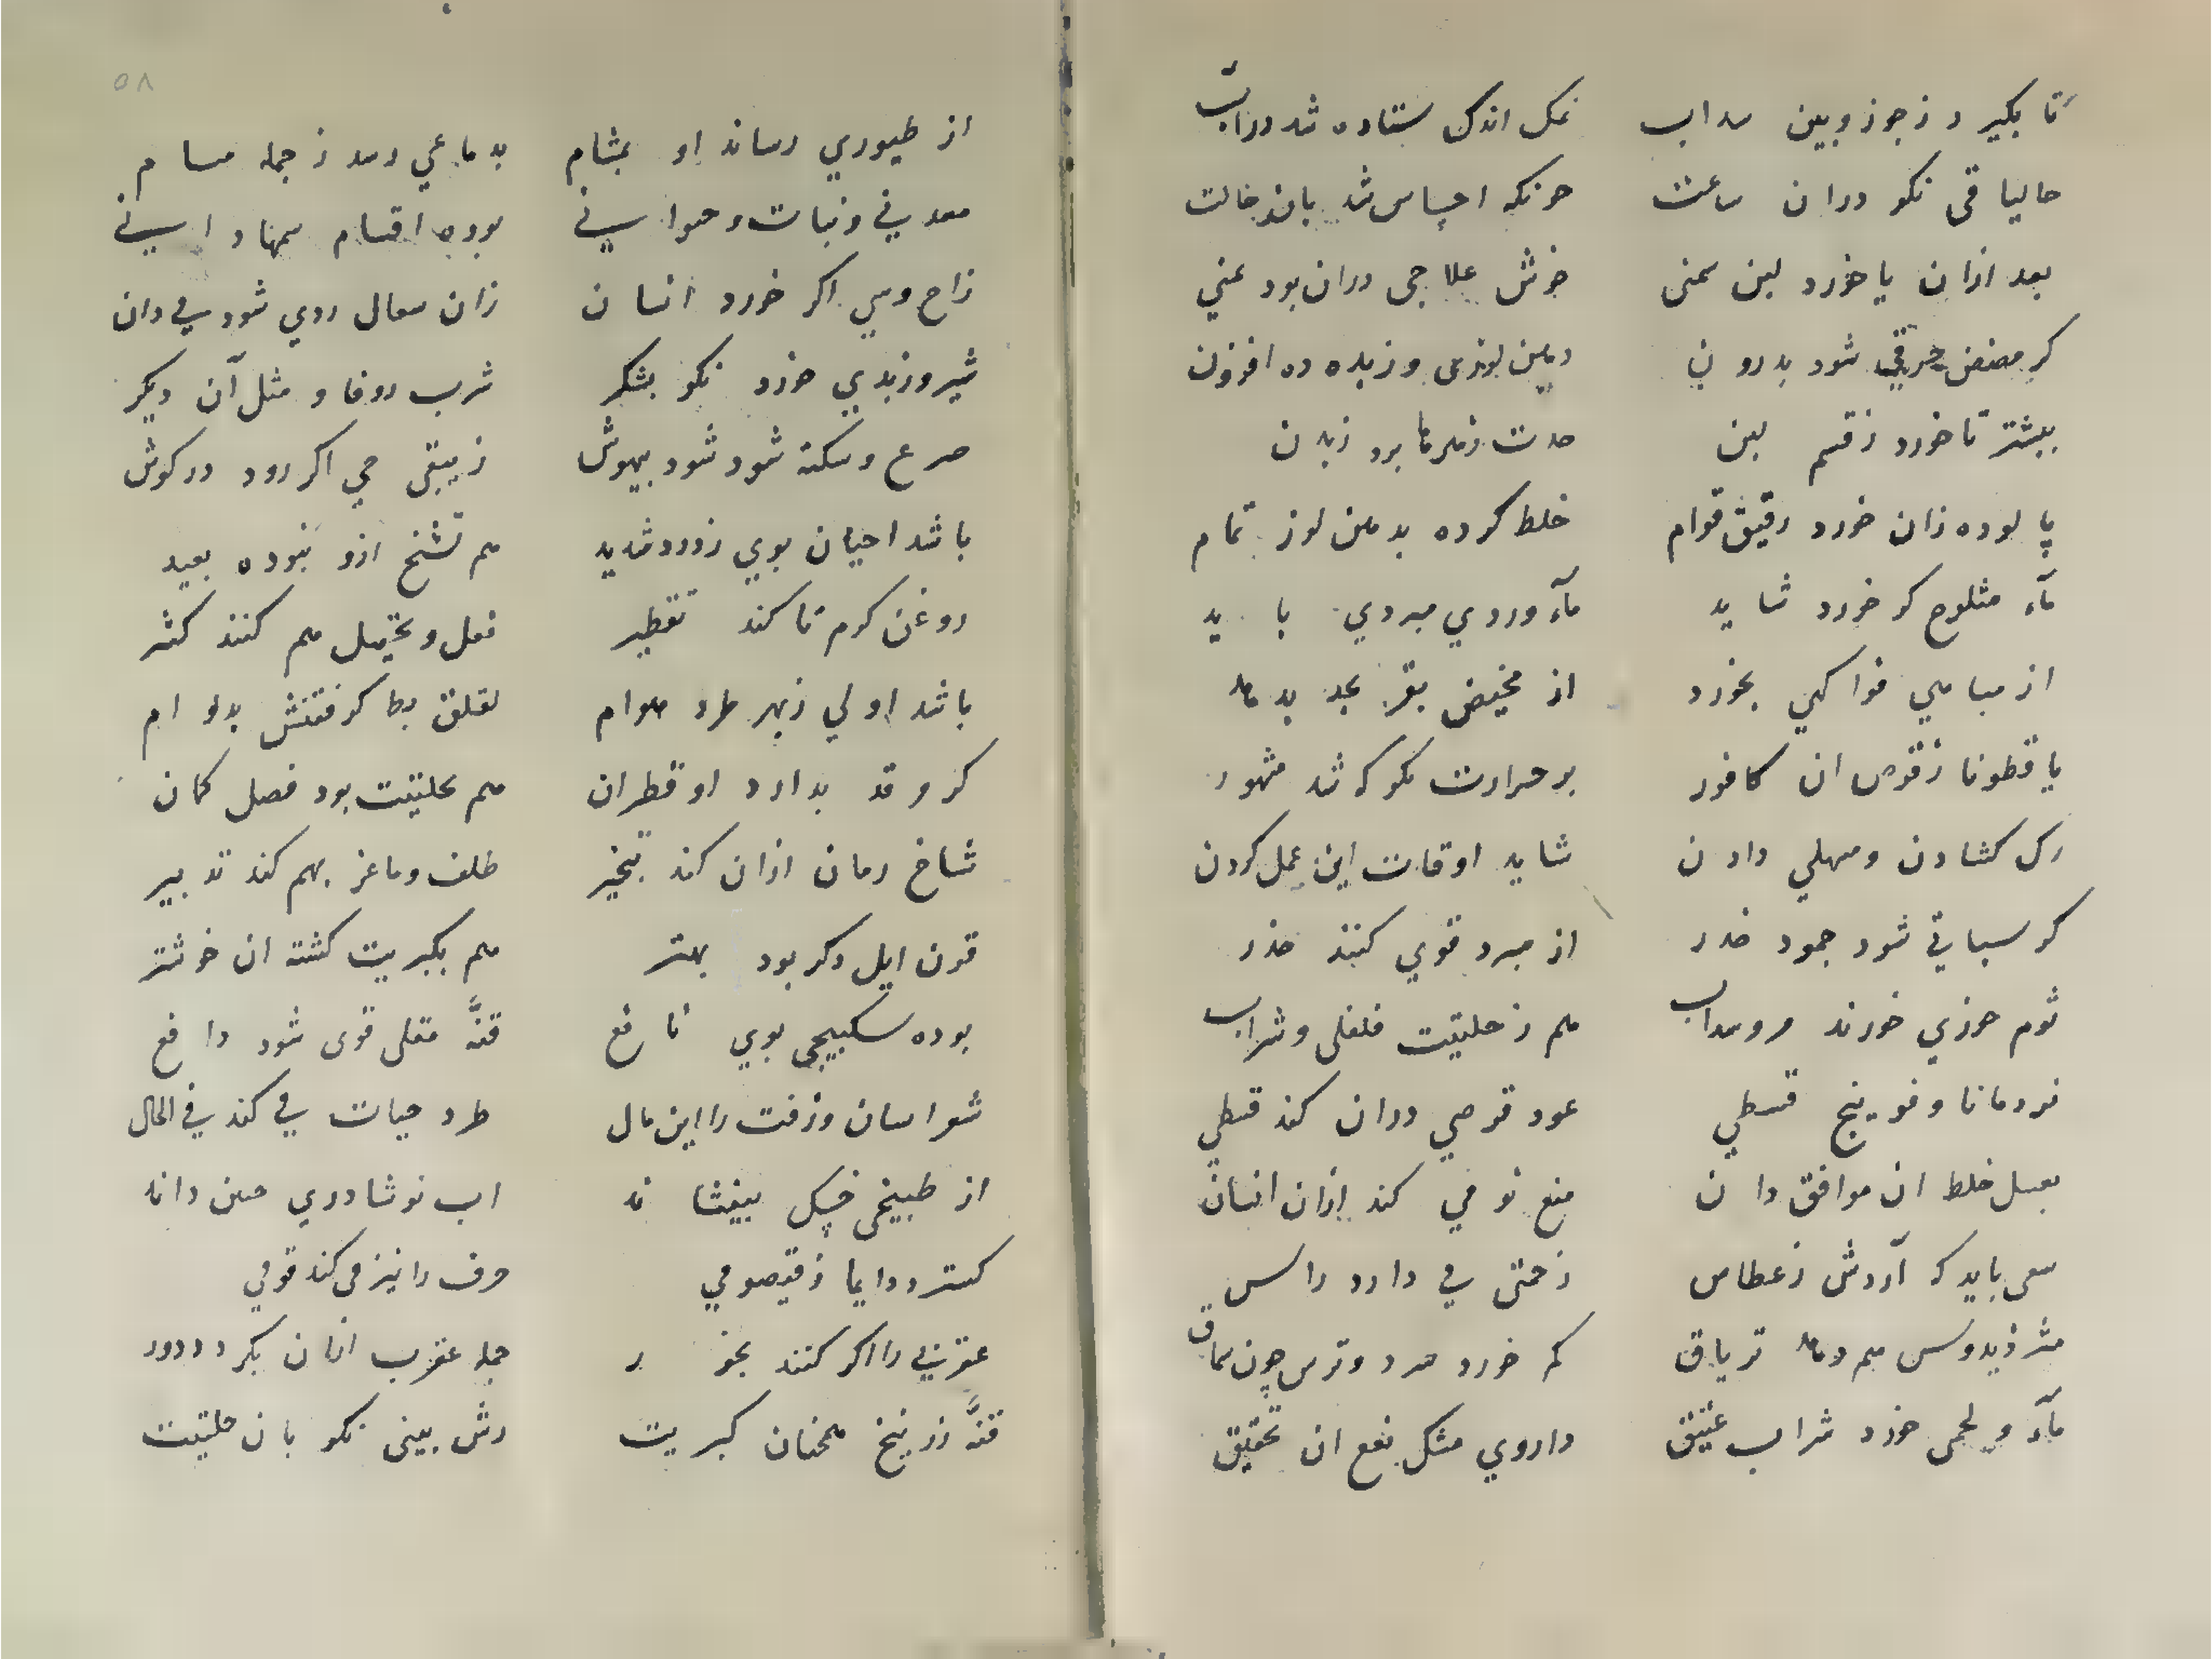 تا بکیرد ز جوز و بین سداب
نمک اندک ستاده شد دراب
حالیا قی نکو دران ساعت
چونکه احساس شد بان حالت
بعد ازان یا خورد لبن سمنی
خوش علاجی دران بود عنی
کر ممضض حریقی شود بدرون
دهن لوزی و زبده ده افزون
بیشتر تا خورد ز قسم لبن
حدت زهرها برد ز بدن
پالوده زان خورد رقیق قوام
خلط کرده بدهن لوز تمام
مآء مثلوج کر خورد شاید
مآء وردی مبردی باید
از میاهی فواکهی بخورد
از مخیض بقر
یا قطونا ز قرص ان کافور
بر حرارت نکو که شد مشهور
رک کشادن و مسهلی دادن
شاید اوقات این عمل کردن
کر سباتی شود جمود خدر
از مبرد قوی کنند حذر
ثوم جوزی خورند مر و سداب
هم ز حلتیت فلفلی و شراب
نردمانا و فوینج قسطی
عود قرصی دران کند قسطی
بعسل خلط ان موافق دان
منع نومی کند ازان انسان
سعی باید که آردش ز عطاس
زحمتی فی دارد راس
مثرذیدوس هم دهد تریاق
که خورد سرد و ترس چون سماق
مآء و لحمی خورد شراب عتیق
داروی مشک نفع ان تحقیق
٥٨
از طیوری رساند او بمشام
بدماغی رسد ز جمله مسام
معدنی و نبات و حیوانی
بوده اقسام سمها دانی
زاج و می اکر خورد انسان
زان سعال ردی شود فی دان
شیر و زبدی خورد نکو بشکر
شرب روفا و مثل آن دیکر
صرع و سکته شود شود بیهوش
زیبقی حی اکر رود در کوش
باشد احیان بوی ز درد شدید
هم تشنج ازو نبوده بعید
روغن کرم تا کند تقطیر
فعل و تحییل هم کنند کثیر
باشد اولی ز بهر طرد هوام
لقلق بط کرفتنش بدوام
کر وقد بدارد او قطران
هم بحلتیت بود فصل کمان
شاخ رمان ازان کند تبخیر
ظلف و ماعز بهم کند تدبیر
قرن ایل دکر بود بهتر
هم بکبریت کشته ان خوشتر
بوده سکبیجی بوی نافع
قنّه مقلی قوی شود دافع
شعر انسان و زفت را این مال
طرد حیات فی کند فی الحال
از طبیخی خسک بیفشاند
اب نوشادری حسن داند
کسترد دایما ز قیصومی
حرف را نیز می کند قومی
عقربی را اکر کنند بخور
جمله عقرب ازان بکردد دور
قنّه زرنیخ همچنان کبریت
دش بینی نکو بان حلتیت